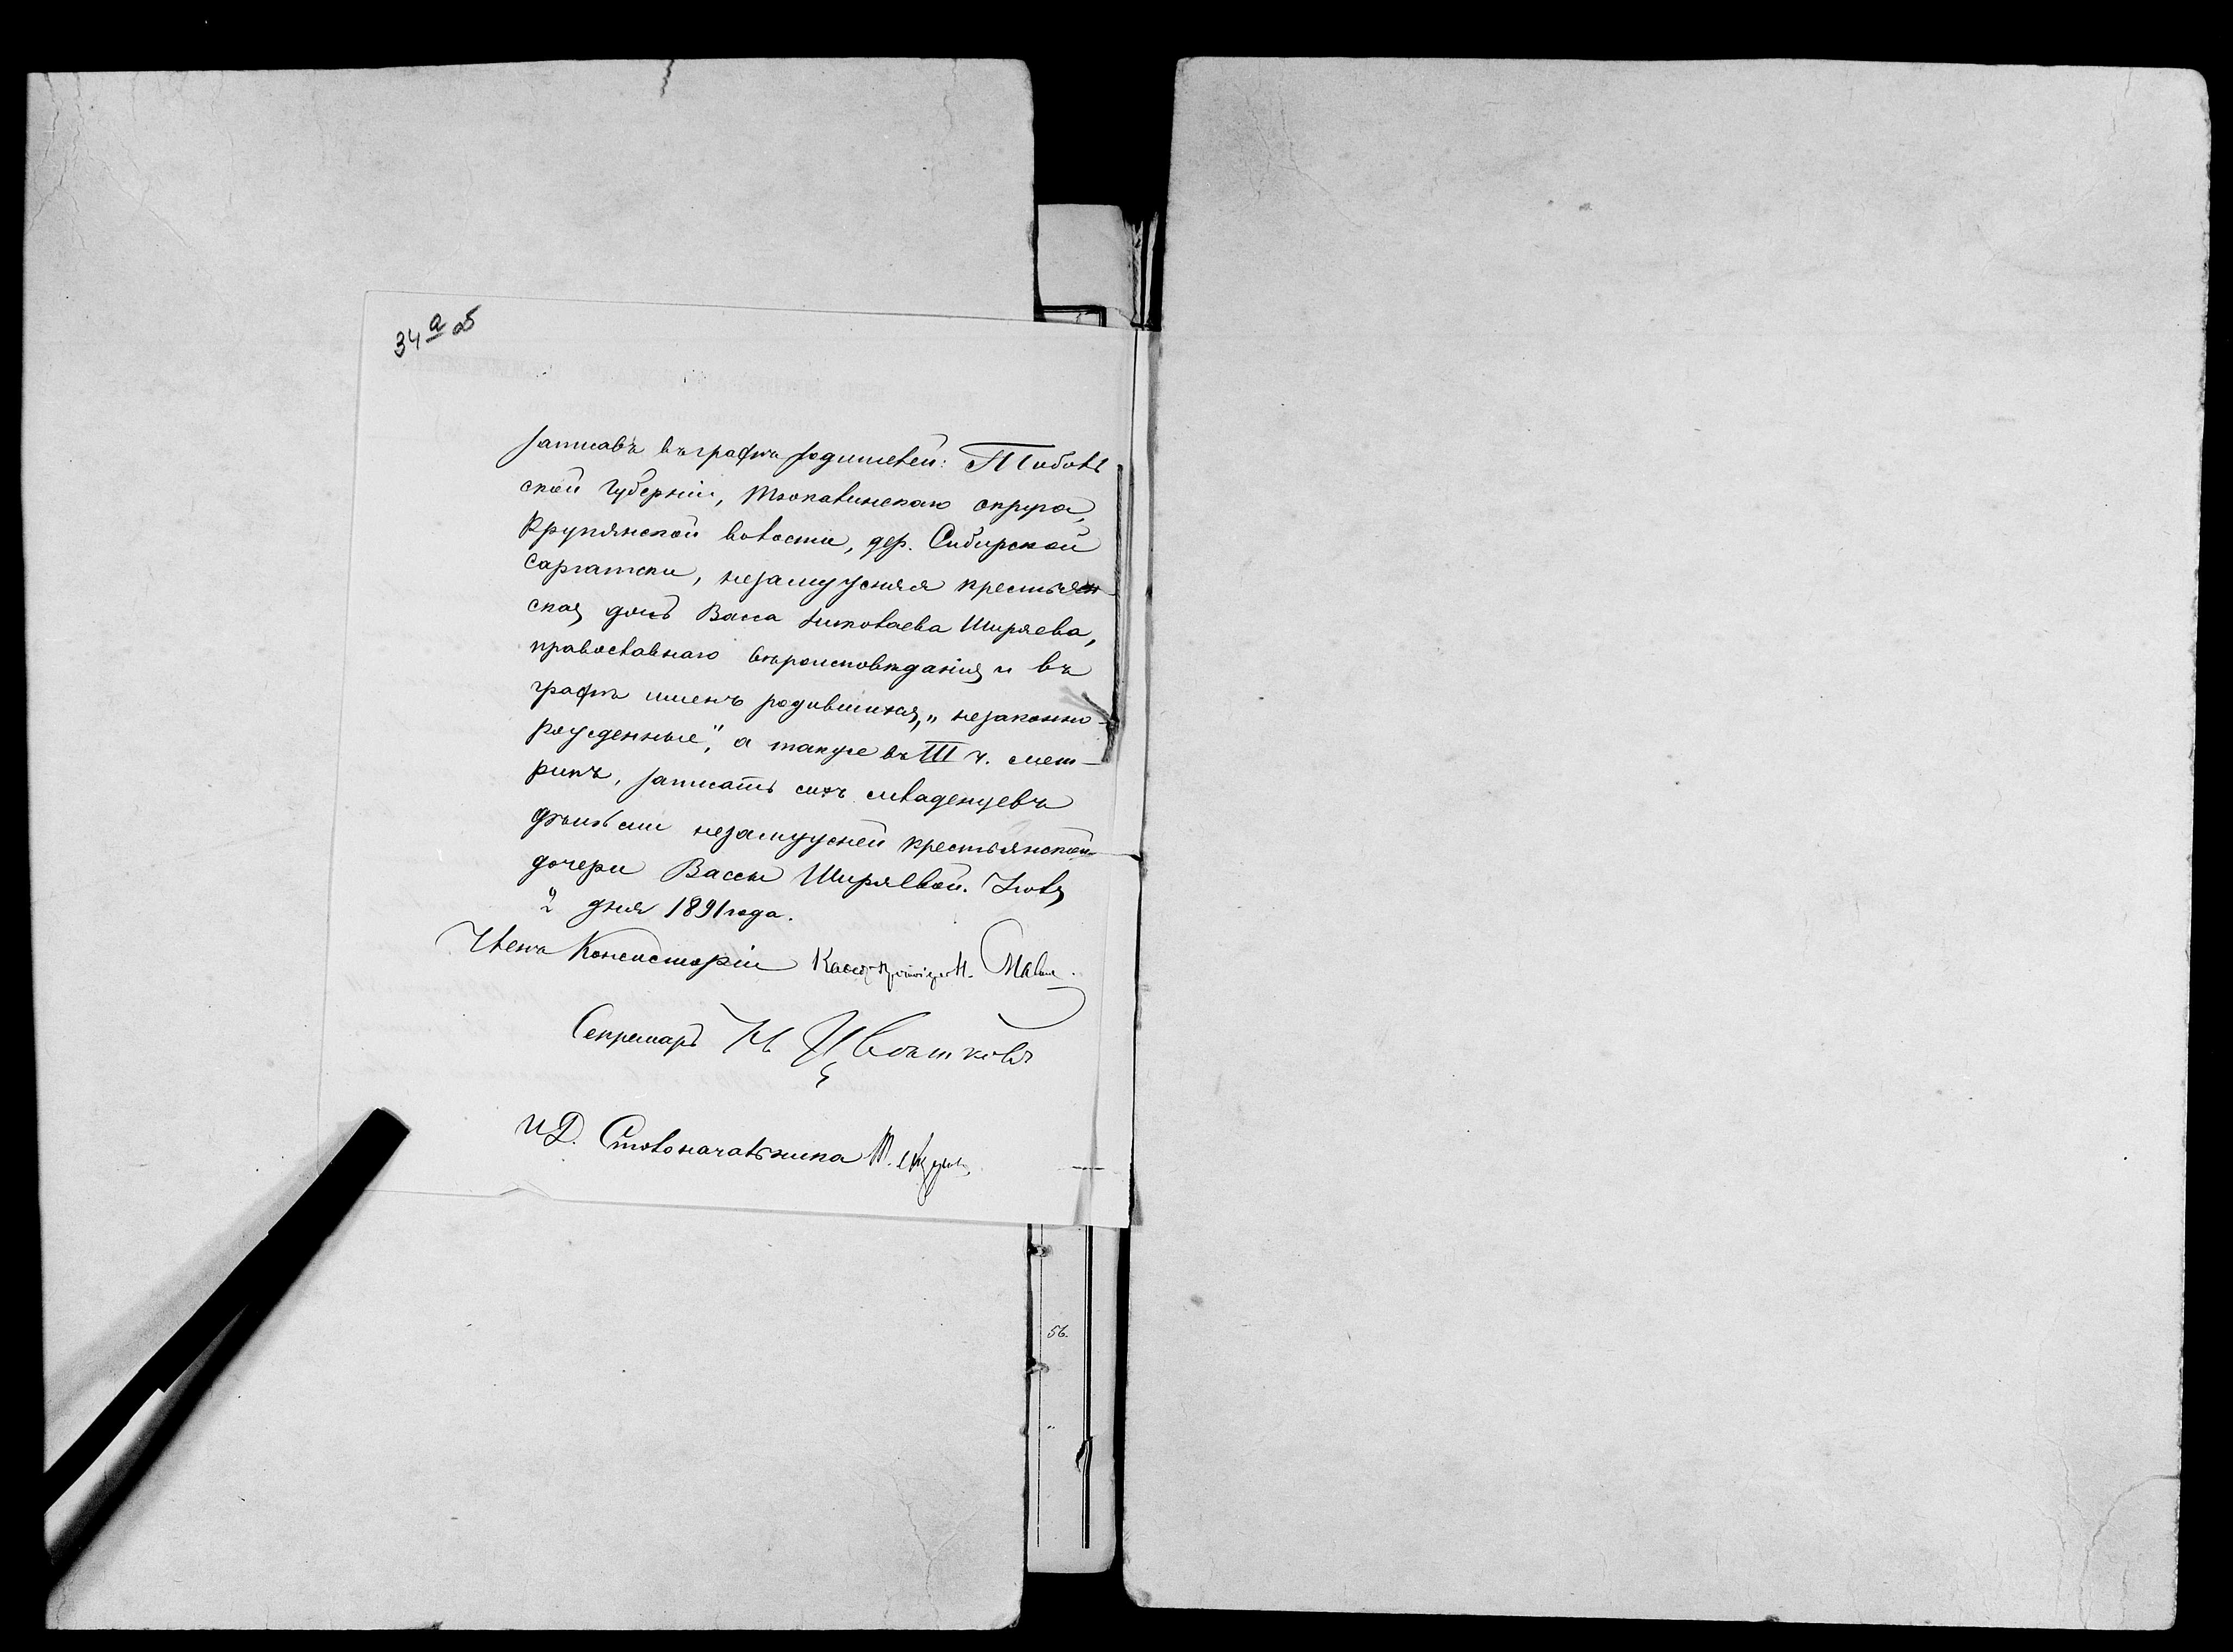 34а об
записавъ въ графѣ родителей: Тоболь
ской губерніи, Тюкалинскаго округа,
Крупянской волости, дер. Сибирской
Саргатки, незамужняя крестьян-
ская дочь Васса Николаева Ширяева,
православнаго вѣроисповѣданія и въ
графѣ именъ родившихся, „незаконно-
рожденные", а также въ III ч. мет-
рикъ, записать сихъ младенцевъ
дѣтьми незамужней крестьянской
дочери Вассы Ширяевой. Іюля
2 дня 1891 года.
Членъ Консисторіи
Секретарь Цвѣтковъ
И.Д. Столоначальника
56.